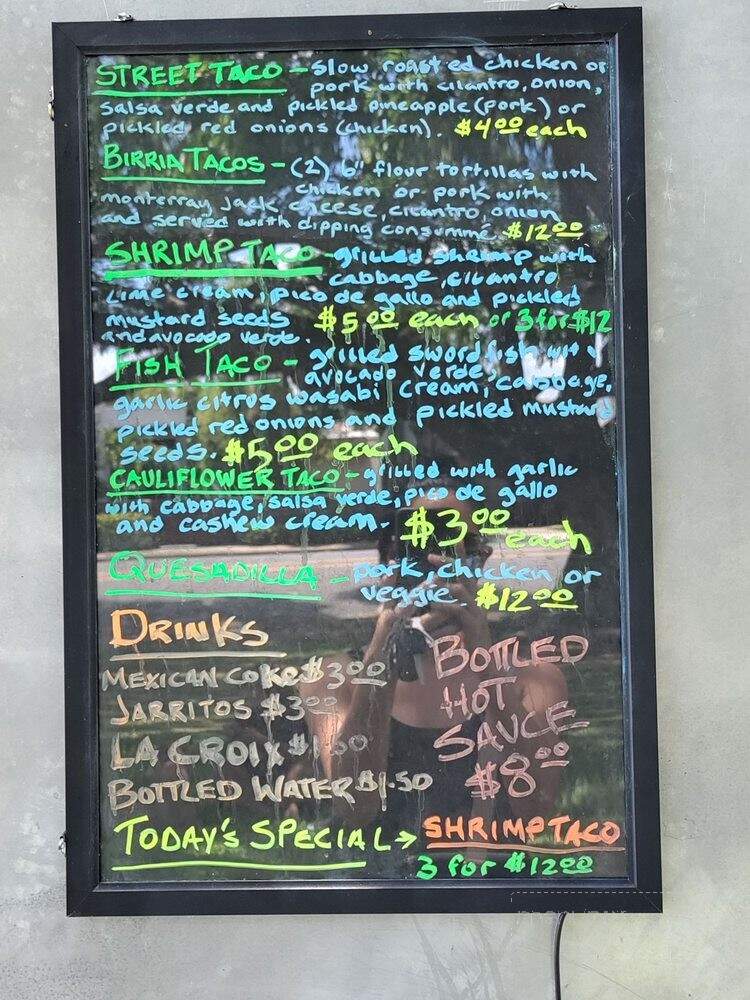 STREET TACO - slow roasted chicken or
pork with cilantro, onion,
salsa verde and pickled pineapple (pork) or
pickled red onions (chicken). $4.00 each
BIRRIA TACOS - (2) 6" flour tortillas with
chicken or pork with
monterray jack cheese, cilantro, onion
and served with dipping consumme $12.00
SHRIMP TACO - grilled shrimp with
cabbage, cilantro
lime cream, pico de gallo and pickled
mustard seeds $5.00 each or 3 for $12
and avocado verde.
FISH TACO - grilled swordfish with
avocado verde,
garlic citrus wasabi cream, cabbage,
pickled red onions and pickled mustard
seeds. $5.00 each
CAULIFLOWER TACO - grilled with garlic
with cabbage, salsa verde, pico de gallo
and cashew cream. $3.00 each
QUESADILLA - pork, chicken or
veggie. $12.00
DRINKS
MEXICAN COKE $3.00
JARRITOS $3.00
LA CROIX $1.50
BOTTLED WATER $1.50
BOTTLED
HOT
SAUCE
$8.00
TODAY'S SPECIAL → SHRIMP TACO
3 for $12.00